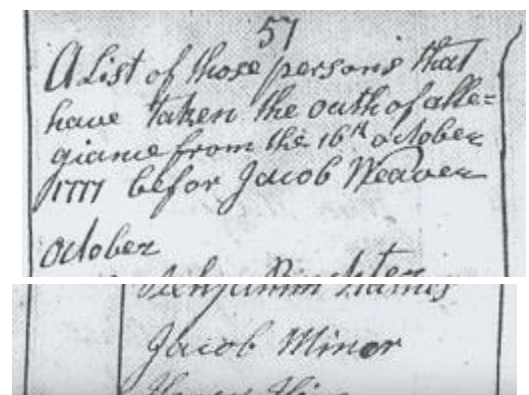 57
A List of those persons that
have taken the outh of alle=
giance from the 16th october
1777 befor Jacob Weaver
october
Jacob Minor